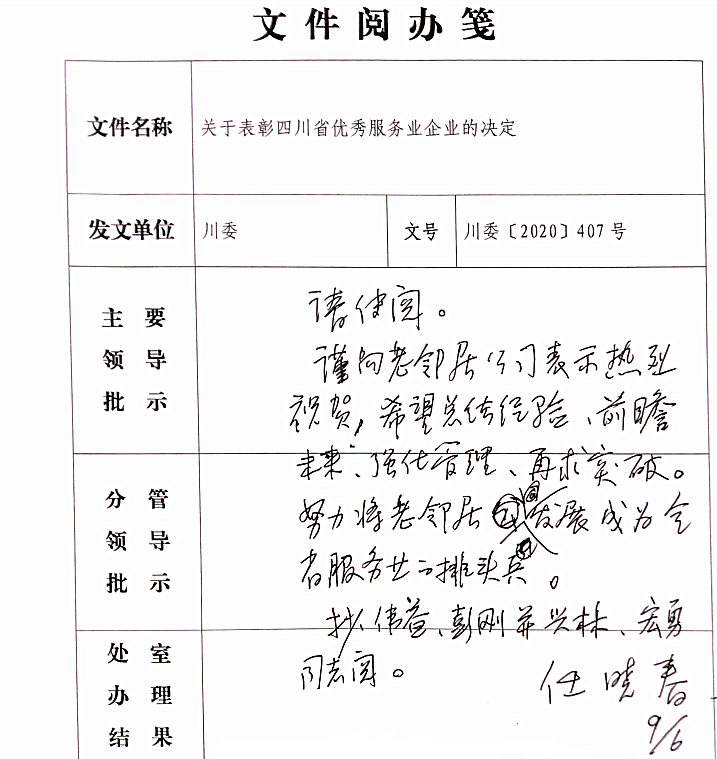 文件阅办笺
文件名称 关于表彰四川省优秀服务业企业的决定
发文单位 川委 文号 川委〔2020〕407号
主要
领导
批示
请使阅。
谨向老邻居公司表示热烈
祝贺,希望总结经验、前瞻
未来、强化管理、再求突破。
分管
领导
批示
努力将老邻居 发展成为全
省服务业的排头兵。
抄伟益、彭刚并兴林、宏勇
同志阅。
处室
办理
结果
任晓春
9/6